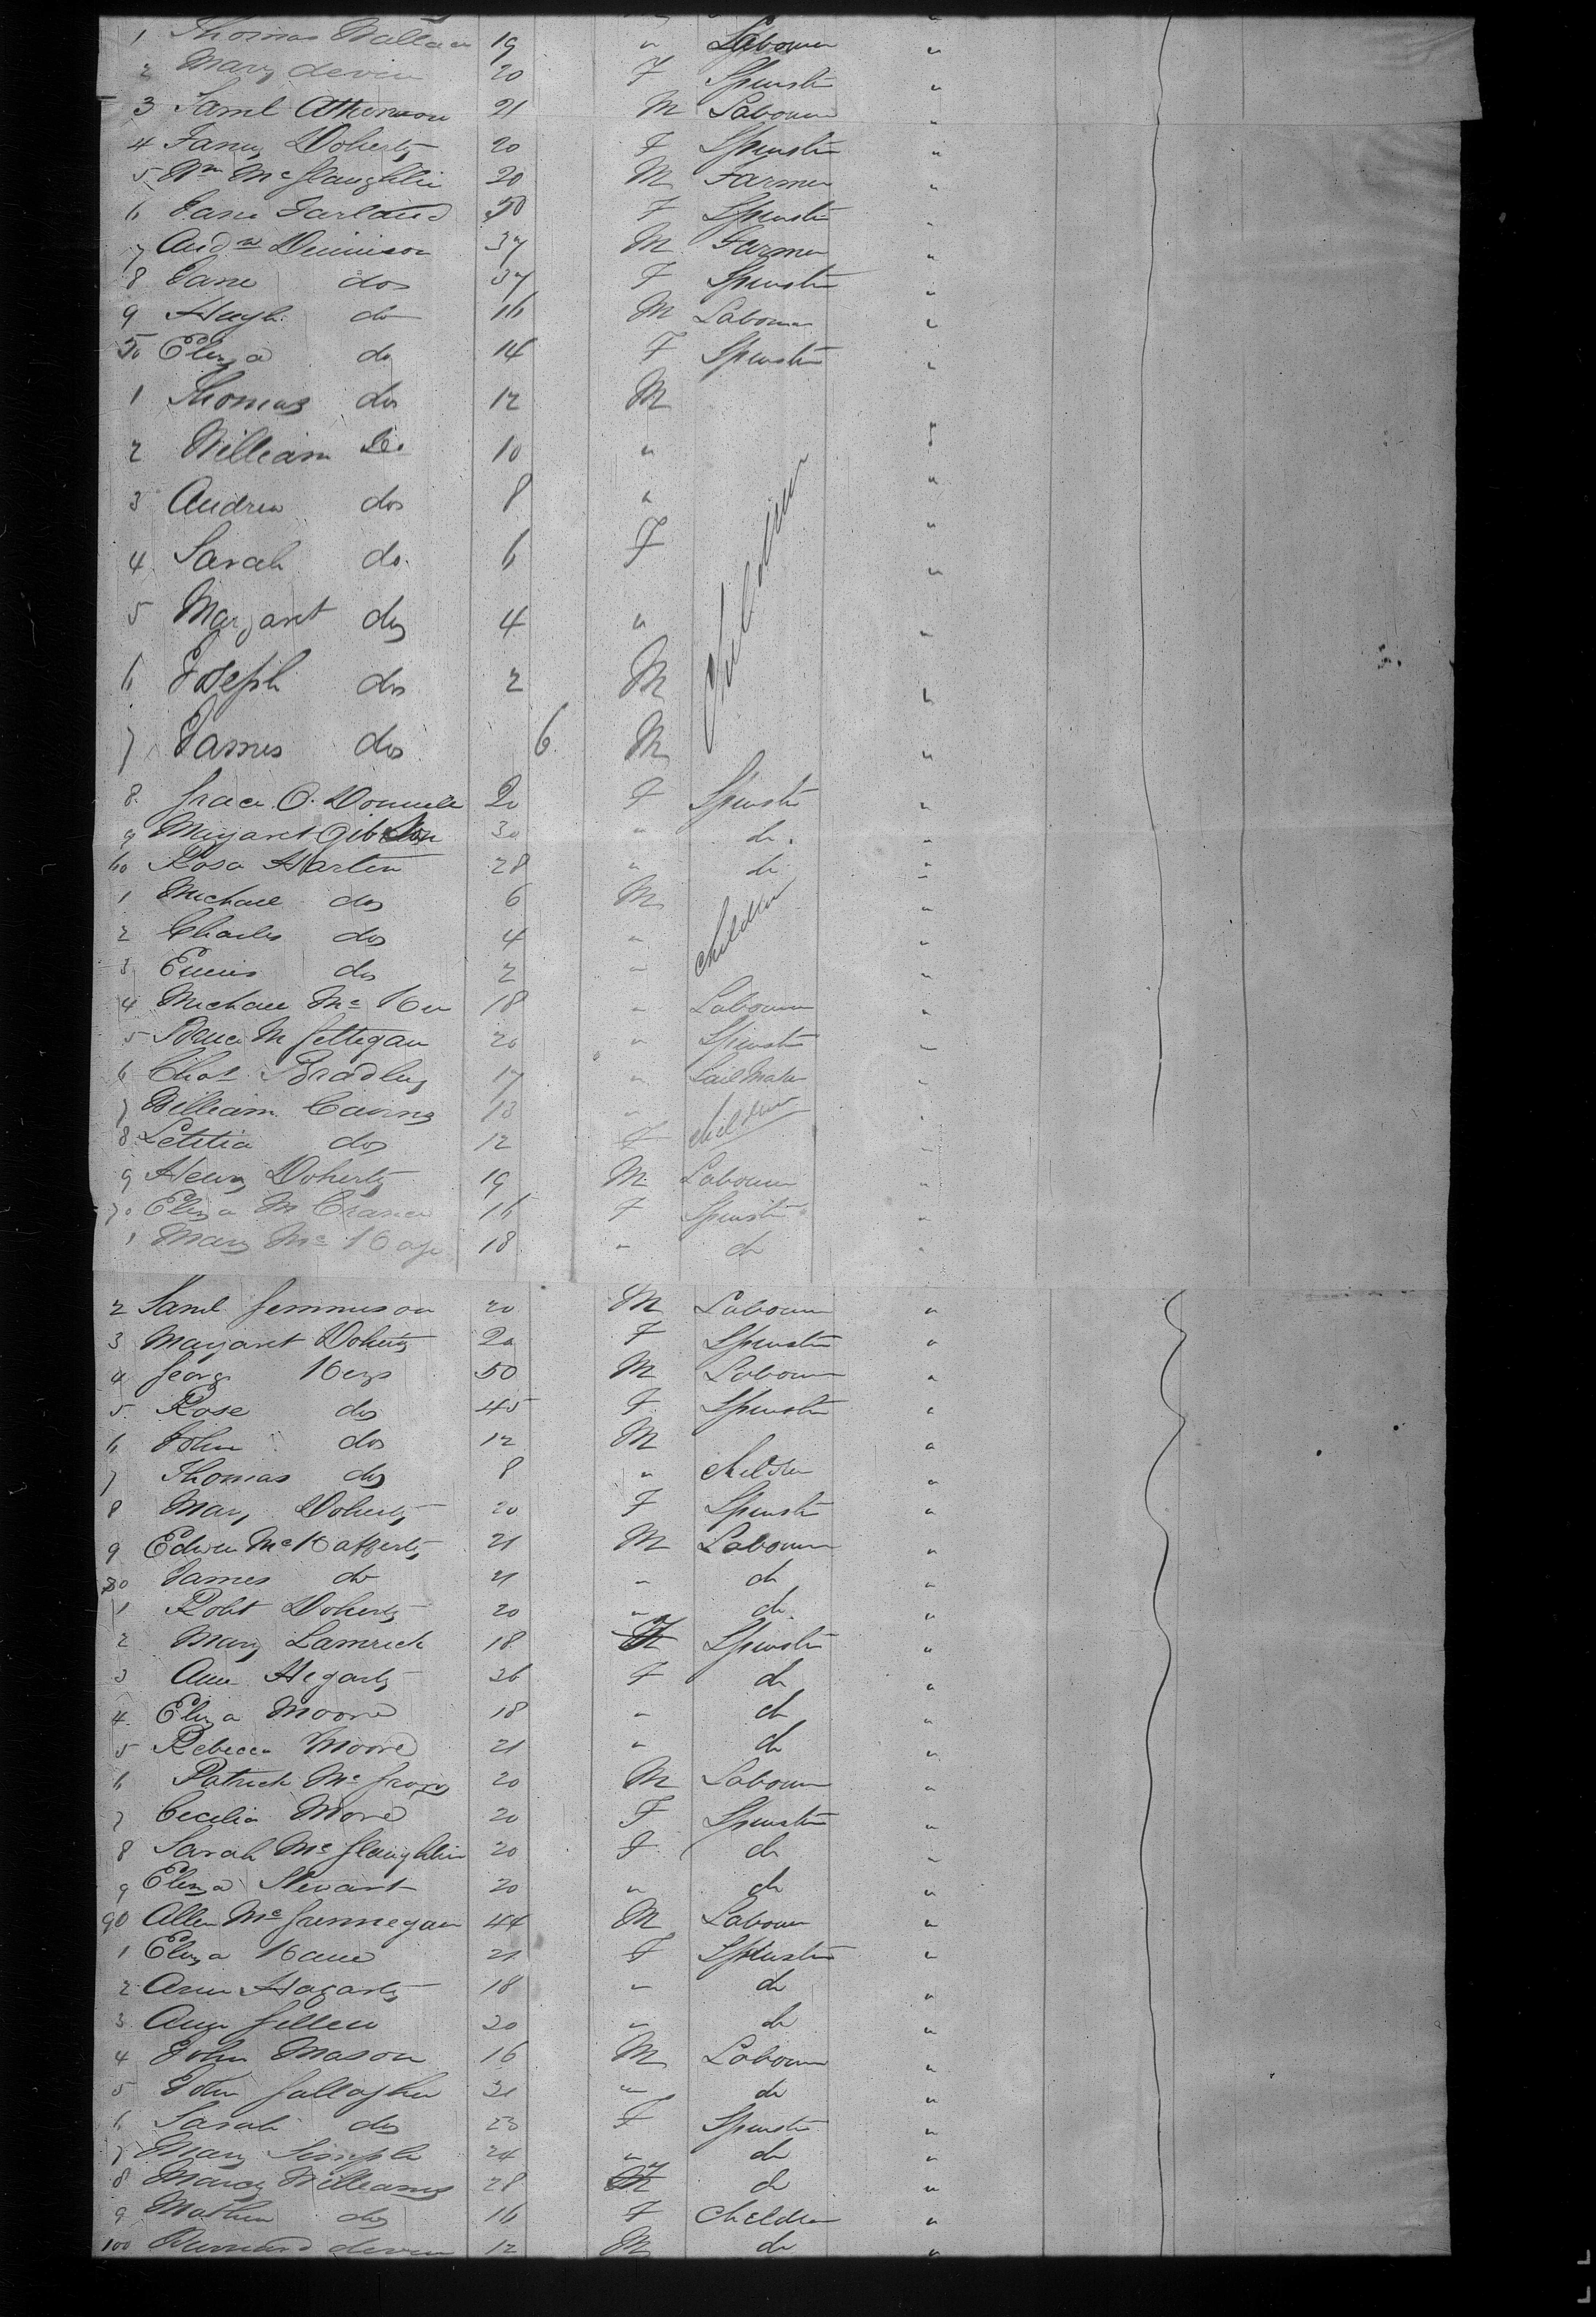 1 Thomas Wallace 19 " Labourer "
2 Mary devin 20 F Spinster "
3 Saml Atkinson 21 M Labourer "
4 Fanny Doherty 20 F Spinster "
5 Wm McGlaughlin 20 M Farmer "
6 Jane Farland 50 F Spinster "
7 Andw Dennison 37 M Farmer "
8 Jane do 37 F Spinster "
9 Hugh do 16 M Labourer "
50 Eliza do 14 F Spinster "
1 Thomas do 12 M
2 William Do 10 " "
3 Andrew do 8 " "
4 Sarah do. 6 F Children "
5 Margaret do 4 " "
6 Joseph do 2 M "
7 James do 6 M "
8 Grace O. Donnell 20 F Spinster "
9 Margaret Gibson 30 " do. "
60 Rosa Martin 28 " do "
1 Michael do 6 M "
2 Charles do 4 " children "
3 do 2 " "
4 Michael Mc 18 " Labourer "
5 M Gettegan 20 " Spinster "
6 Chas Bradley 17 " Sail Maker "
7 William Cairns 13 " children "
8 Letitia do 12 F "
9 Henry Doherty 19 M Labourer "
70 Eliza M 16 F Spinster "
1 Mary Mc 18 " do "
2 Saml Jemmison 20 M Labourer "
3 Margaret Doherty 20 F Spinster "
4 George Keys 50 M Labourer "
5 Rose do 45 F Spinster "
6 John do 12 M "
7 Thomas do 8 " children "
8 Mary Doherty 20 F Spinster "
9 Edwin McKafferty 21 M Labourer "
80 James do 21 " do "
1 Robt Doherty 20 " do. "
2 Mary Lamrick 18 F Spinster "
3 Ann Hegarty 26 F do "
4 Eliza Moore 18 " do "
5 Rebecca Moore 21 " do "
6 Patrick Mc 20 M Labourer "
7 Cecilia Moore 20 F Spinster "
8 Sarah McGlaughlin 20 F do "
9 Eliza Stewart 20 " do "
90 Allen McGunnegan 44 M Labourer "
1 Eliza Kane 21 F Spinster "
2 Ann Hagarty 18 " do "
3 Gillen 20 " do "
4 John Mason 16 M Labourer "
5 John Gallagher 21 " do "
6 Sarah do 23 F Spinster "
7 Mary Semple 24 " do "
8 Williams 28 F do "
9 do 16 F Children "
100 devin 12 M do "